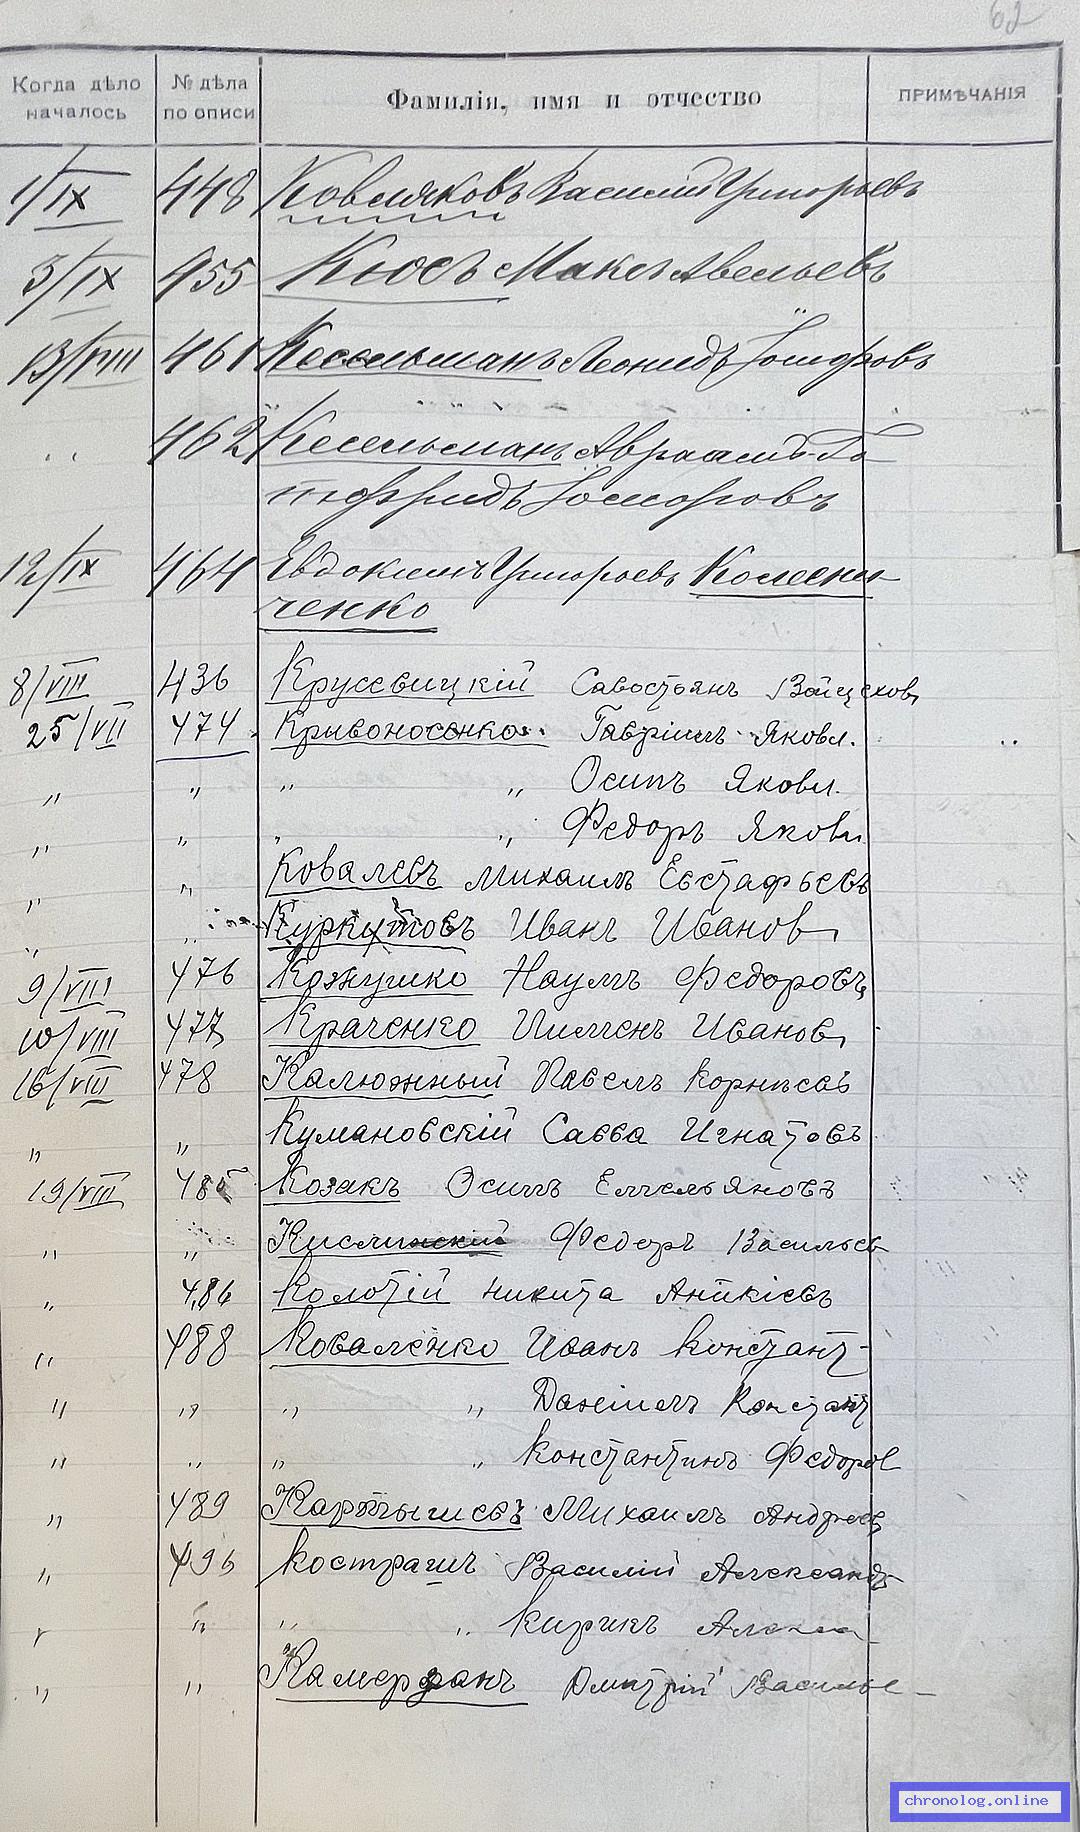 62
Когда дѣло началось № дѣла по описи Фамилія, имя и отчество ПРИМѢЧАНІЯ
1/IX 448 Ковляковъ Василій Григорьевъ
5/IX 455 Кюсъ Максъ Авельевъ
13/VIII 461 Кесельманъ Леонидъ
" 462 Кесельманъ Авраамъ-Го-
тфридъ
12/IX 464 Евдокимъ Григорьевъ Колесни-
ченко
8/VIII 436 Крусевицкій Савостьянъ Войцехов,
25/VII 474 Кривоносенко Гавріилъ Яковл.
" " " " Осипъ Яковл.
" " " " Федоръ Яковл
" " Ковалевъ Михаилъ Евстафьевъ
" " Иванъ Иванов,
9/VIII 476 Кожушко Наумъ Федоровъ
10/VIII 477 Краченко Пименъ Иванов,
16/VIII 478 Калюжный Павелъ Корнѣевъ
" " Кумановскій Савва Игнатовъ
19/VIII 485 Козакъ Осипъ Емельяновъ
" " Федоръ Васильев
" 486 Колотій Никита Аникіевъ
" 488 Коваленко Иванъ Констант-
" " " " Даніилъ Констант
" " " " Константинъ Федоров
" 489 Картышевъ Михаилъ Андреев
" 496 Кострашъ Василій Александ-
" " " " Кирикъ
" " Камерданъ Дмитрій Василье-
chronolog.online